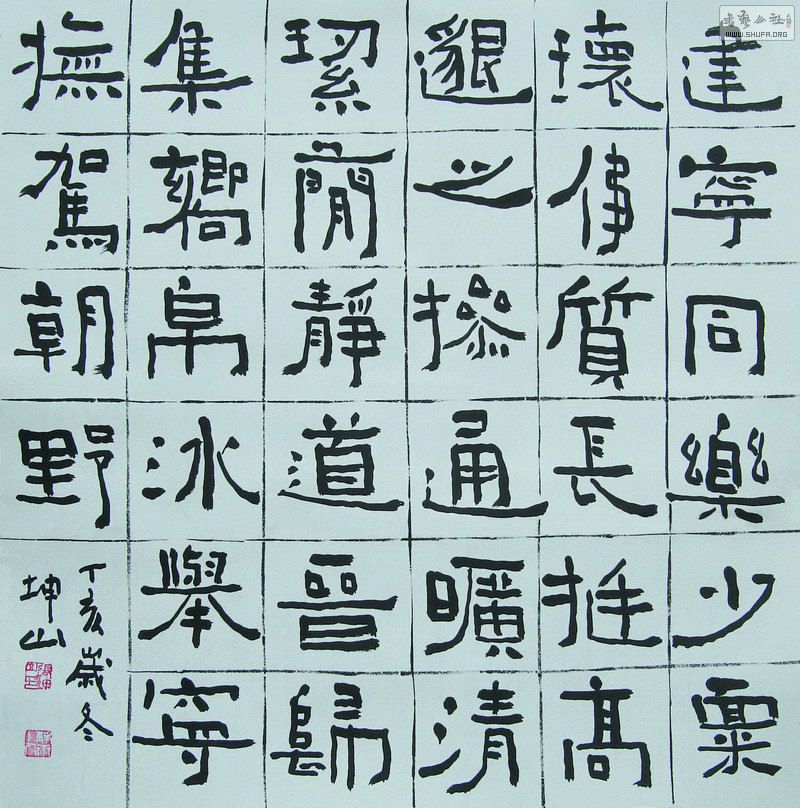 建寧同樂少稟
瓌偉質長挺高
邈之操通曠清
絜簡靜道晉歸
集嚮帛冰舉寧
撫駕朝野
丁亥歲冬
坤山
書藝公社
WWW.SHUFA.ORG